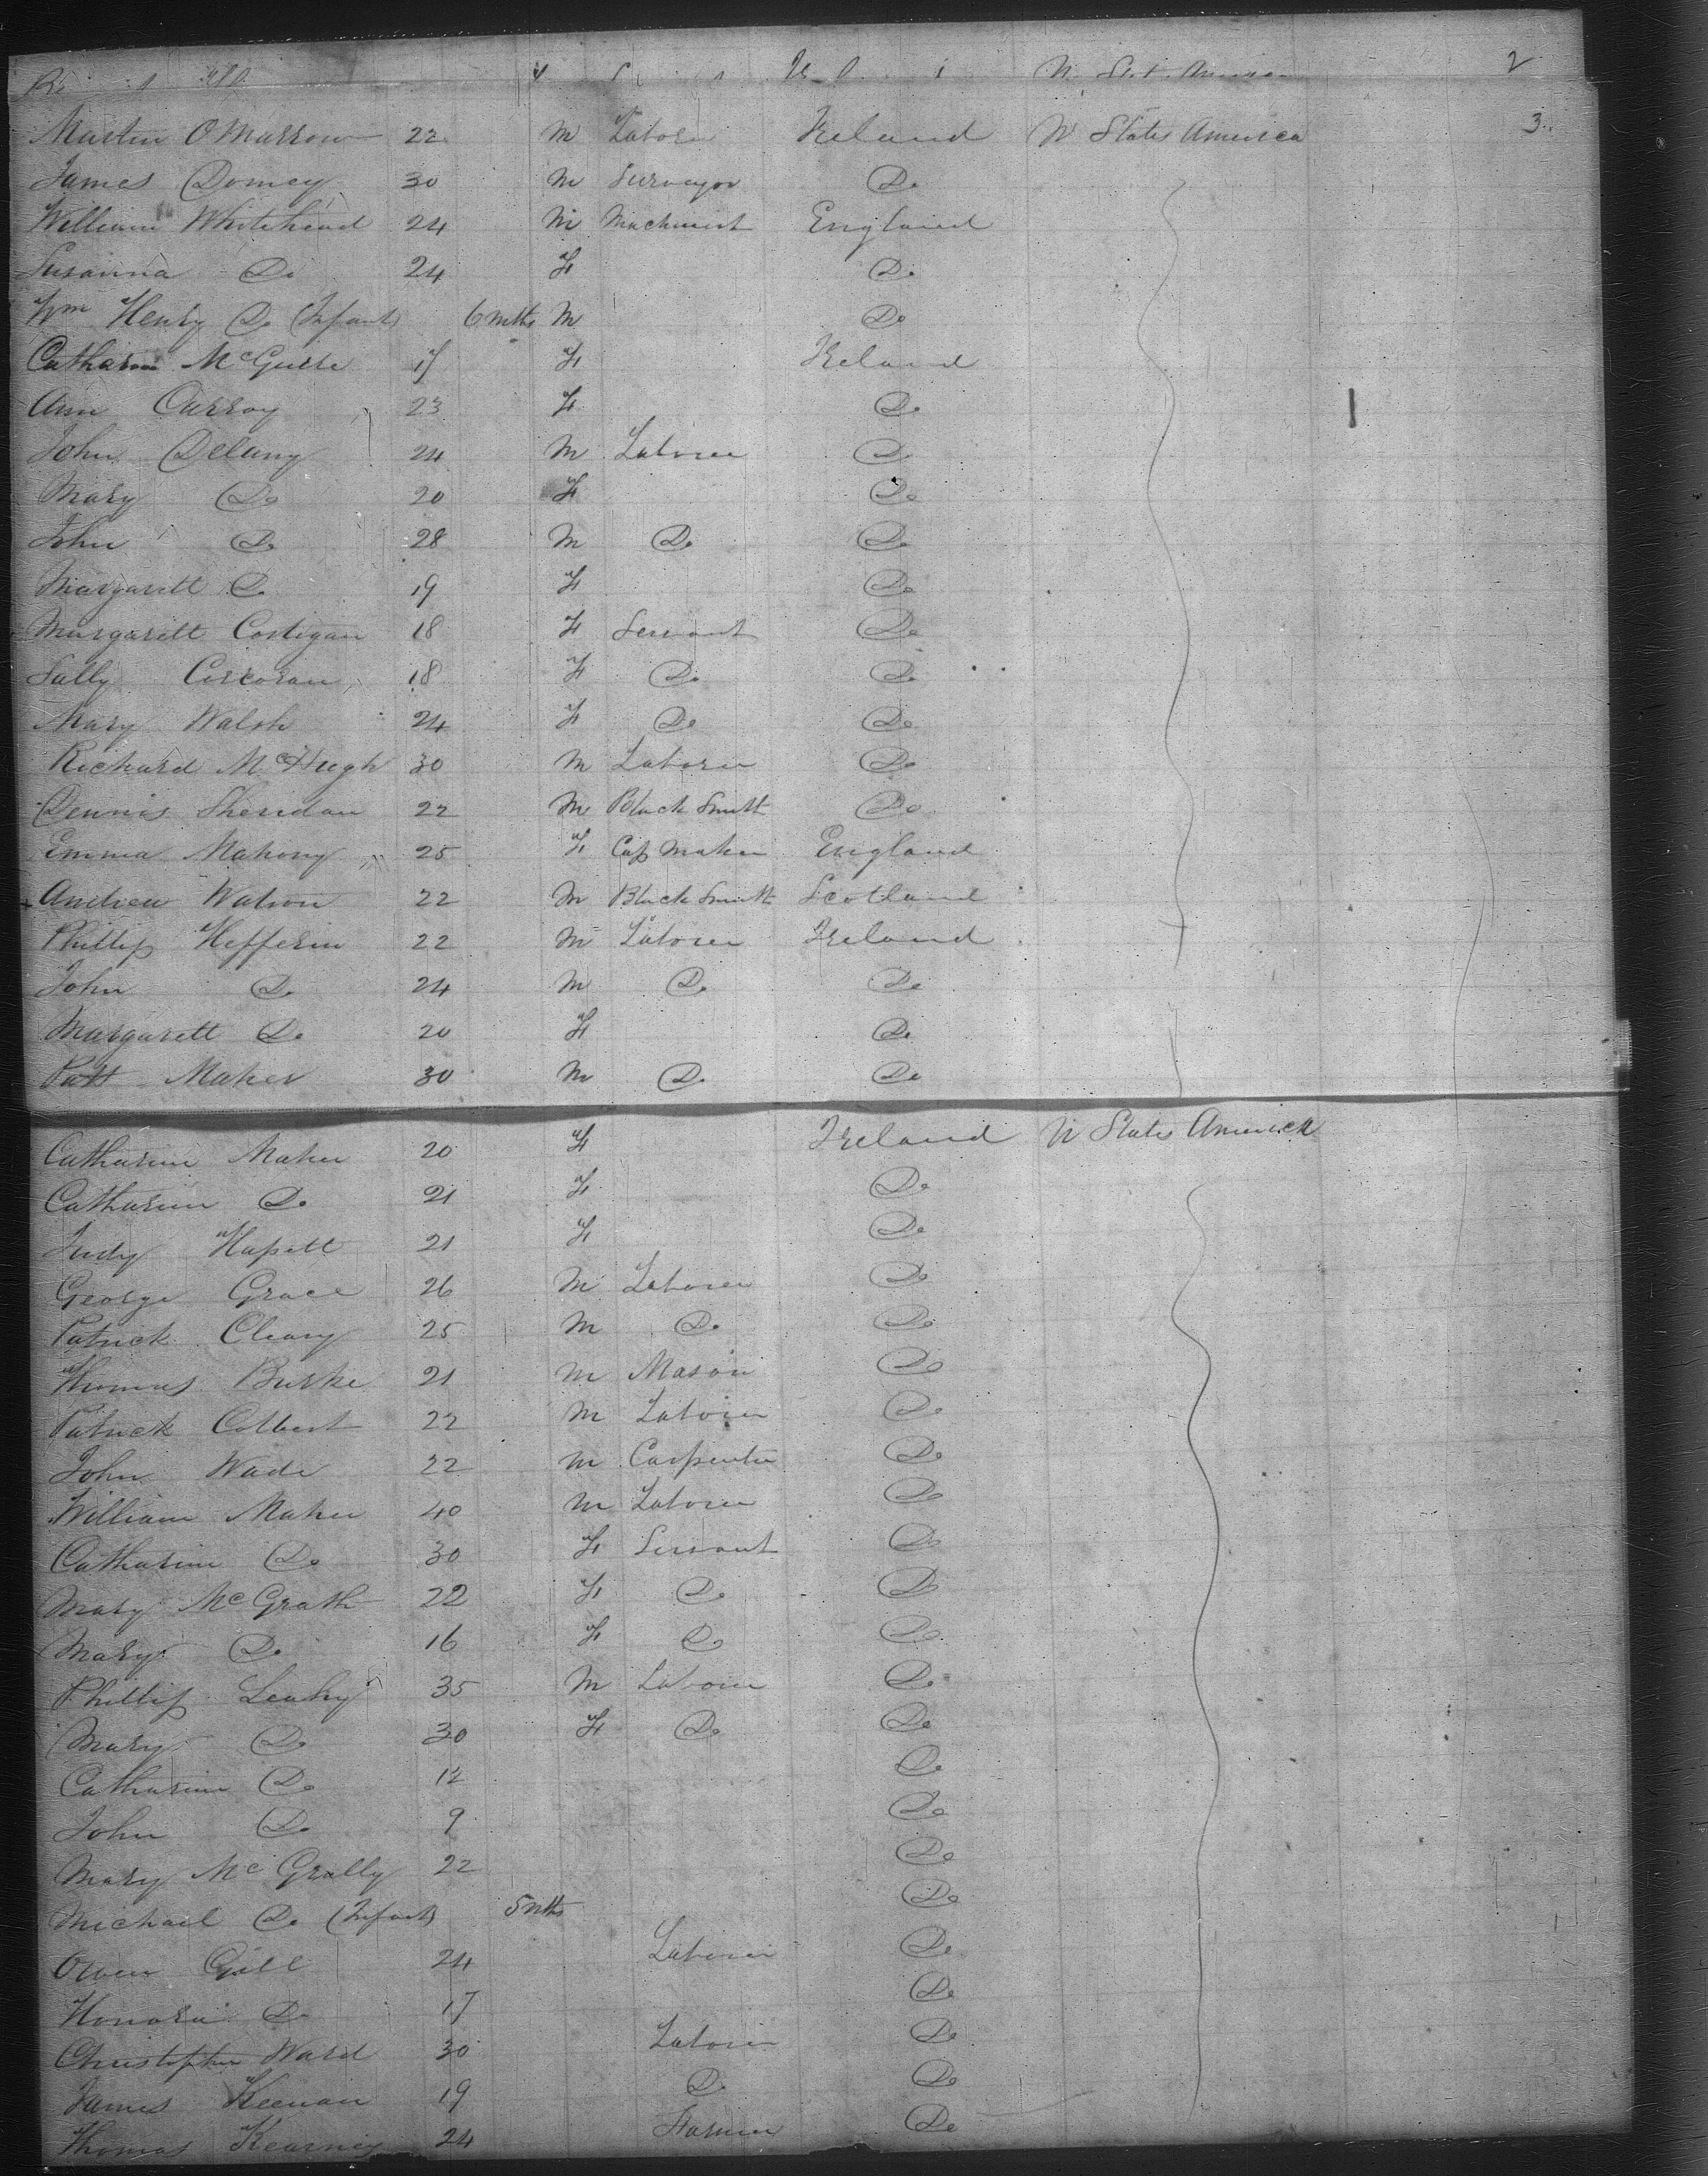 2
Martin O Marrow 22 M Laborer Ireland U States America 3
James Domey 30 M Surveyor Do
William Whitehead 24 M Machinest England
Susanna Do 24 F Do
Wm Henry Do (Infant) 6 mths M Do
Catharine McGuire 17 F Ireland
Ann Carroy 23 F Do
John Delany 24 M Laborer Do
Mary Do 20 F Do
John Do 28 M Do Do
Margarett Do 19 F Do
Margarett Costigan 18 F Servant Do
Sally Corcoran 18 F Do Do
Mary Walsh 24 F Do Do
Richard McHugh 30 M Laborer Do
Dennis Sheridan 22 M Black Smith Do
Emma Mahony 25 F Cap Maker England
Andrew Watson 22 M Black Smith Scotland
Phillip Hefferin 22 M Laborer Ireland
John Do 24 M Do Do
Margarett Do 20 F Do
Patt Maher 30 M Do Do
Catharine Maher 20 F Ireland U States America
Catharine Do 21 F Do
Judy 21 F Do
George Grace 26 M Laborer Do
Patrick Cleary 25 M Do Do
Thomas Burke 21 M Mason Do
Patrick Colbert 22 M Laborer Do
John Wade 22 M Carpenter Do
William Maher 40 M Laborer Do
Catharine Do 30 F Servant Do
Mary McGrath 22 F Do Do
Mary Do 16 F Do Do
Phillip Leahy 35 M Laborer Do
Mary Do 30 F Do Do
Catharine Do 12 Do
John Do 9 Do
Mary McGrally 22 Do
Michael Do (Infant) 5 mths Do
Owen Gill 24 Laborer Do
Honora Do 17 Do
Christopher Ward 30 Laborer Do
James Keenan 19 Do Do
Thomas Kearney 24 Farmer Do